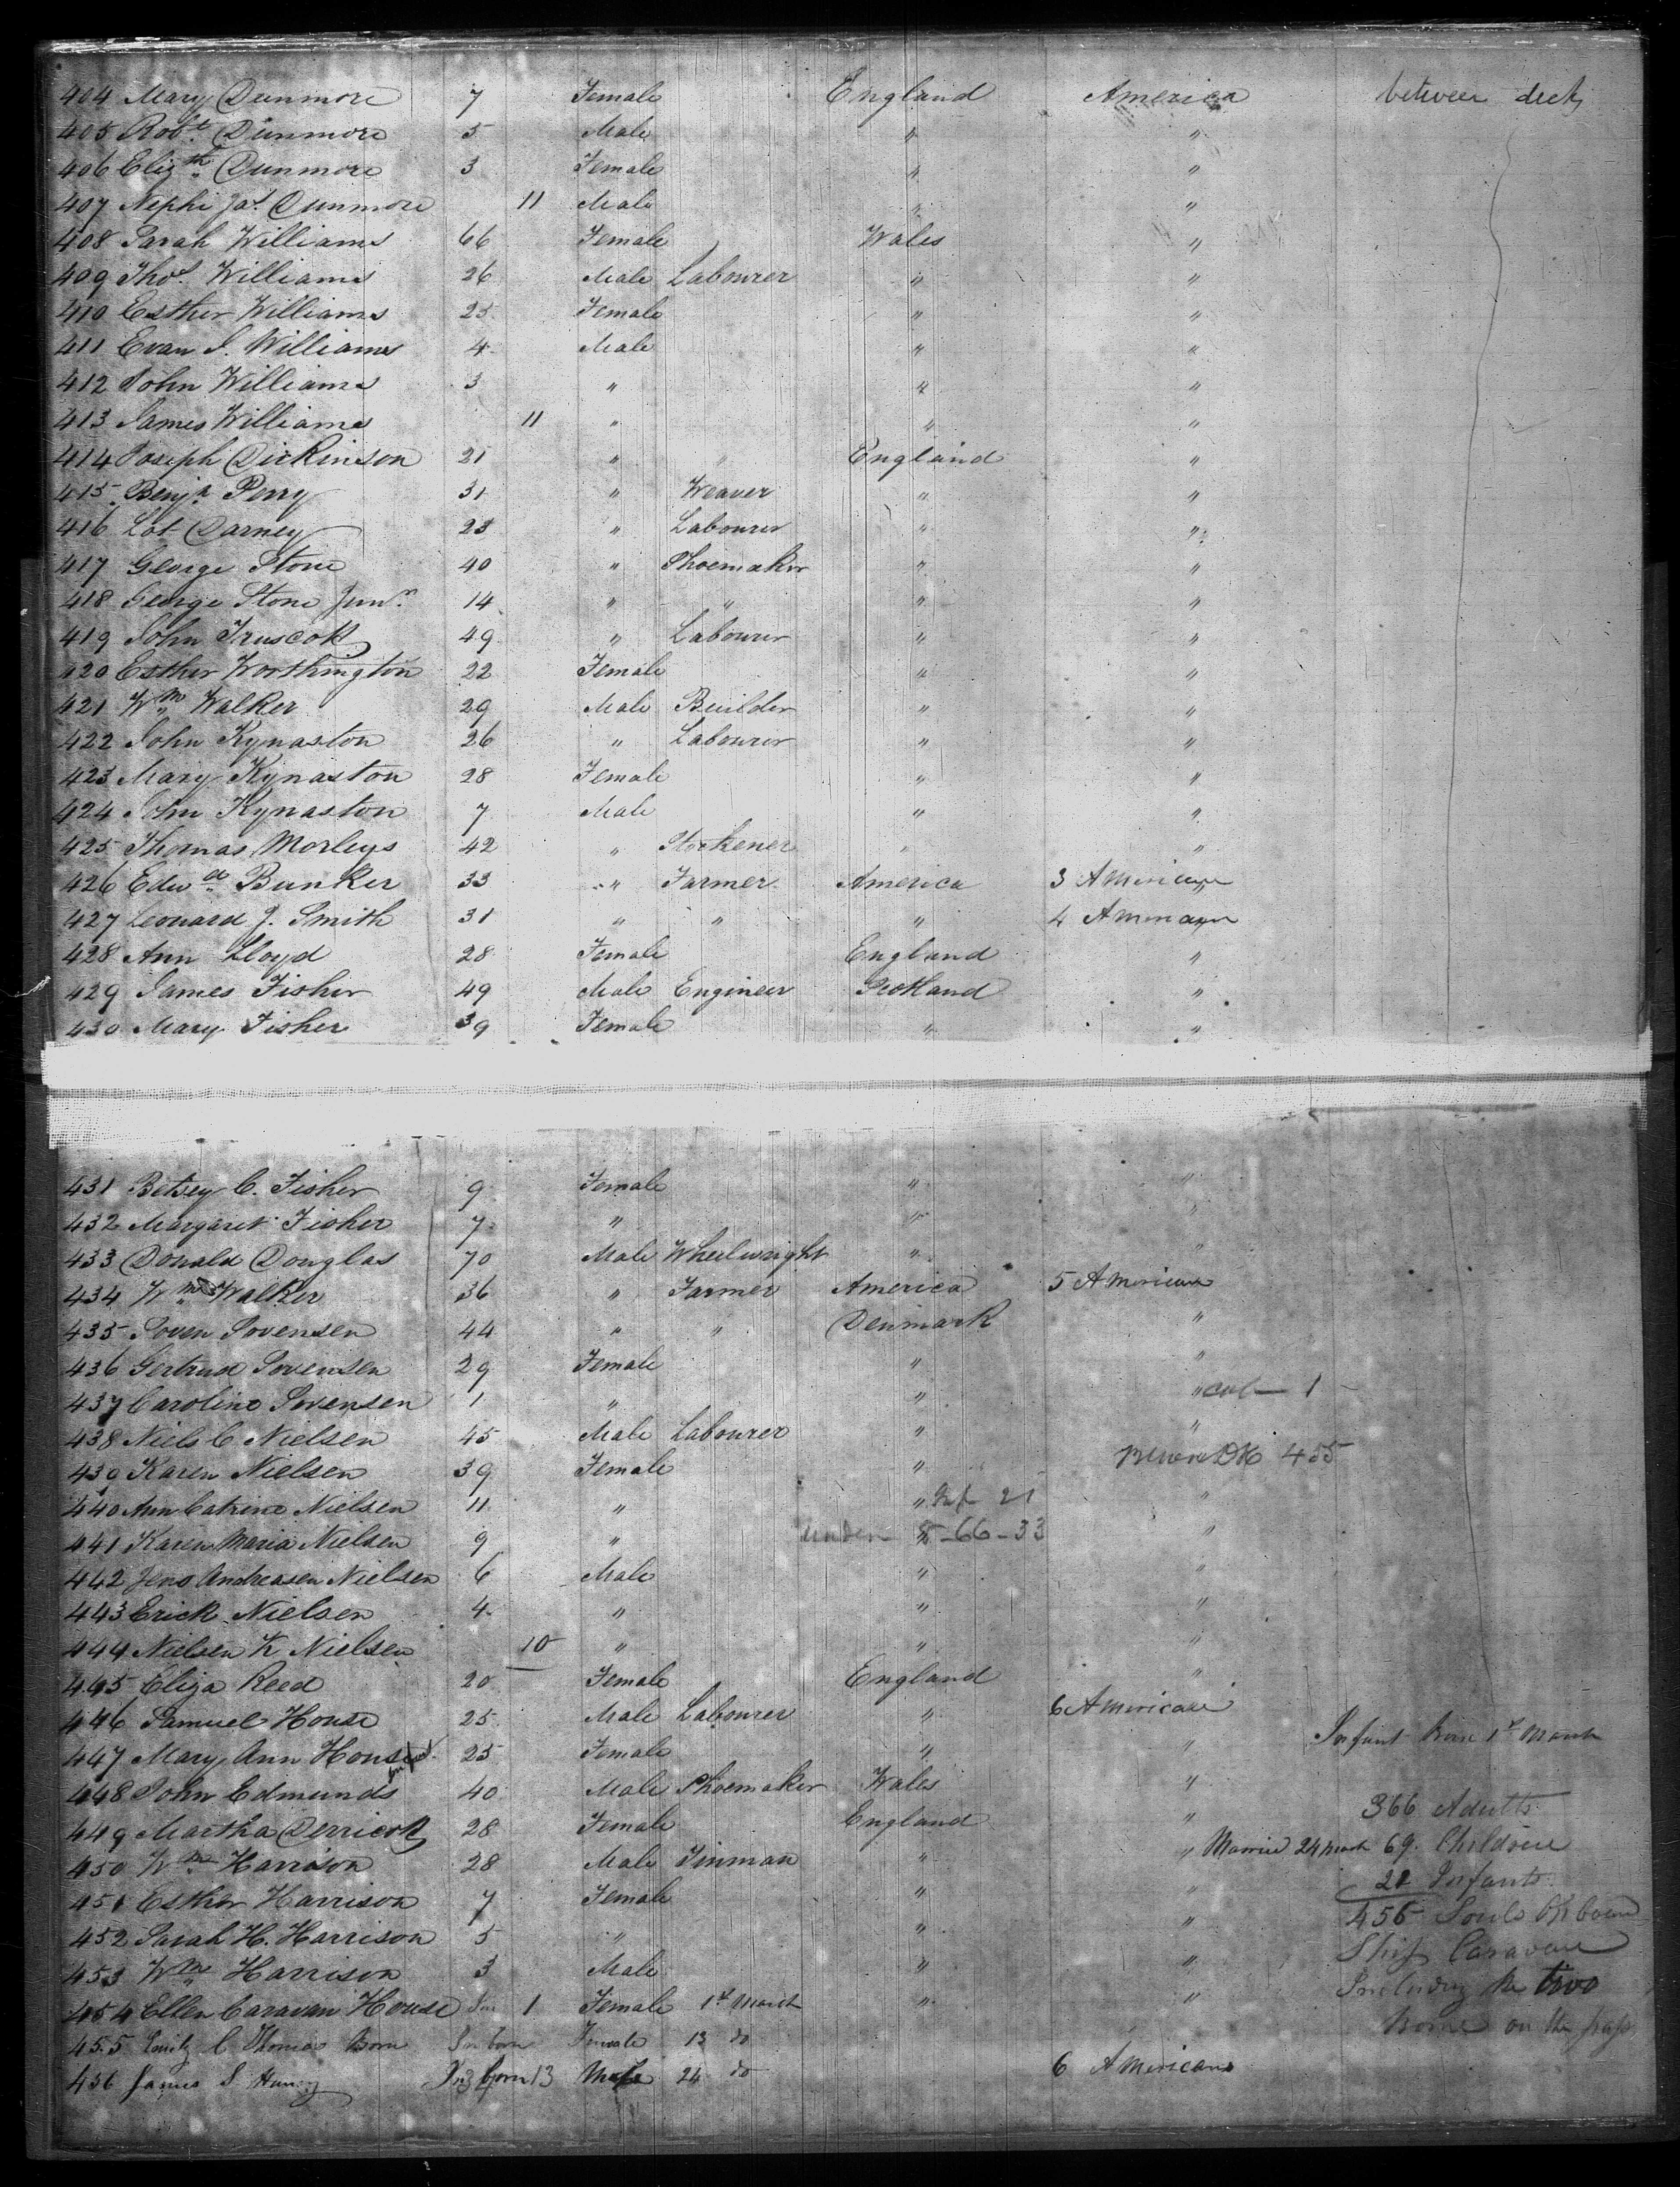 404 Mary Dunmore 7 Female England America between decks
405 Robt. Dunmore 5 Male " "
406 Elizth. Dunmore 3 Female " "
407 Nephi Jas. Dunmore 11 Male " "
408 Sarah Williams 66 Female Wales "
409 Thos. Williams 26 Male Labourer " "
410 Esther Williams 25 Female " "
411 Evan S. Williams 4 Male " "
412 John Williams 3 " " "
413 James Williams 11 " " "
414 Joseph Dickinson 21 " " England "
415 Benjn. Perry 31 " Weaver " "
416 Lot Darney 23 " Labourer " "
417 George Stone 40 " Shoemaker " "
418 George Stone Junr. 14 " " " "
419 John Truscott 49 " Labourer " "
420 Esther Worthington 22 Female " "
421 Wm. Walker 29 Male Builder " "
422 John Kynaston 26 " Labourer " "
423 Mary Kynaston 28 Female " "
424 John Kynaston 7 Male " "
425 Thomas Morleys 42 " Stockener " "
426 Edwd. Bunker 33 " Farmer America 3 American
427 Leonard J. Smith 31 " " " 4 American
428 Ann Lloyd 28 Female England "
429 James Fisher 49 Male Engineer Scotland "
430 Mary Fisher 39 Female " "
431 Betsey C. Fisher 9 Female " "
432 Margaret Fisher 7 " " "
433 Donald Douglas 70 Male Wheelwright " "
434 Wm. Walker 36 " Farmer America 5 American
435 Soven Sovensen 44 " " Denmark "
436 Gertrud Sovensen 29 Female " "
437 Caroline Sovensen 1 " " " 1
438 Niels C Nielsen 45 Male Labourer " "
439 Karen Nielsen 39 Female " 455
440 Ann Catrine Nielsen 11 " " Inf 21 "
441 Karen Maria Nielsen 9 " under 8-66-33 "
442 Jens Andreasen Nielsen 6 Male " "
443 Erick Nielsen 4 " " "
444 Nielsen K Nielsen 10 " " "
445 Eliza Reed 20 Female England "
446 Samuel House 25 Male Labourer " 6 American
447 Mary Ann House 25 Female " " Infant Born 1st March
448 John Edmunds 40 Male Shoemaker Wales "
449 Martha Derricott 28 Female England " 366 Adults
450 Wm. Harrison 28 Male Tinman " " Married 24 March 69. Children
451 Esther Harrison 7 Female " " 21 Infants
452 Sarah H. Harrison 5 " " " 456 Souls On board
453 Wm. Harrison 3 Male " " Ship Caravan
454 Ellen Caravan House Inf 1 Female 1st March " " Including the two
455 Emily C Thomas Born Sea born Female 13 do borne on the pass
456 James S 13 Male 24 do 6 Americans